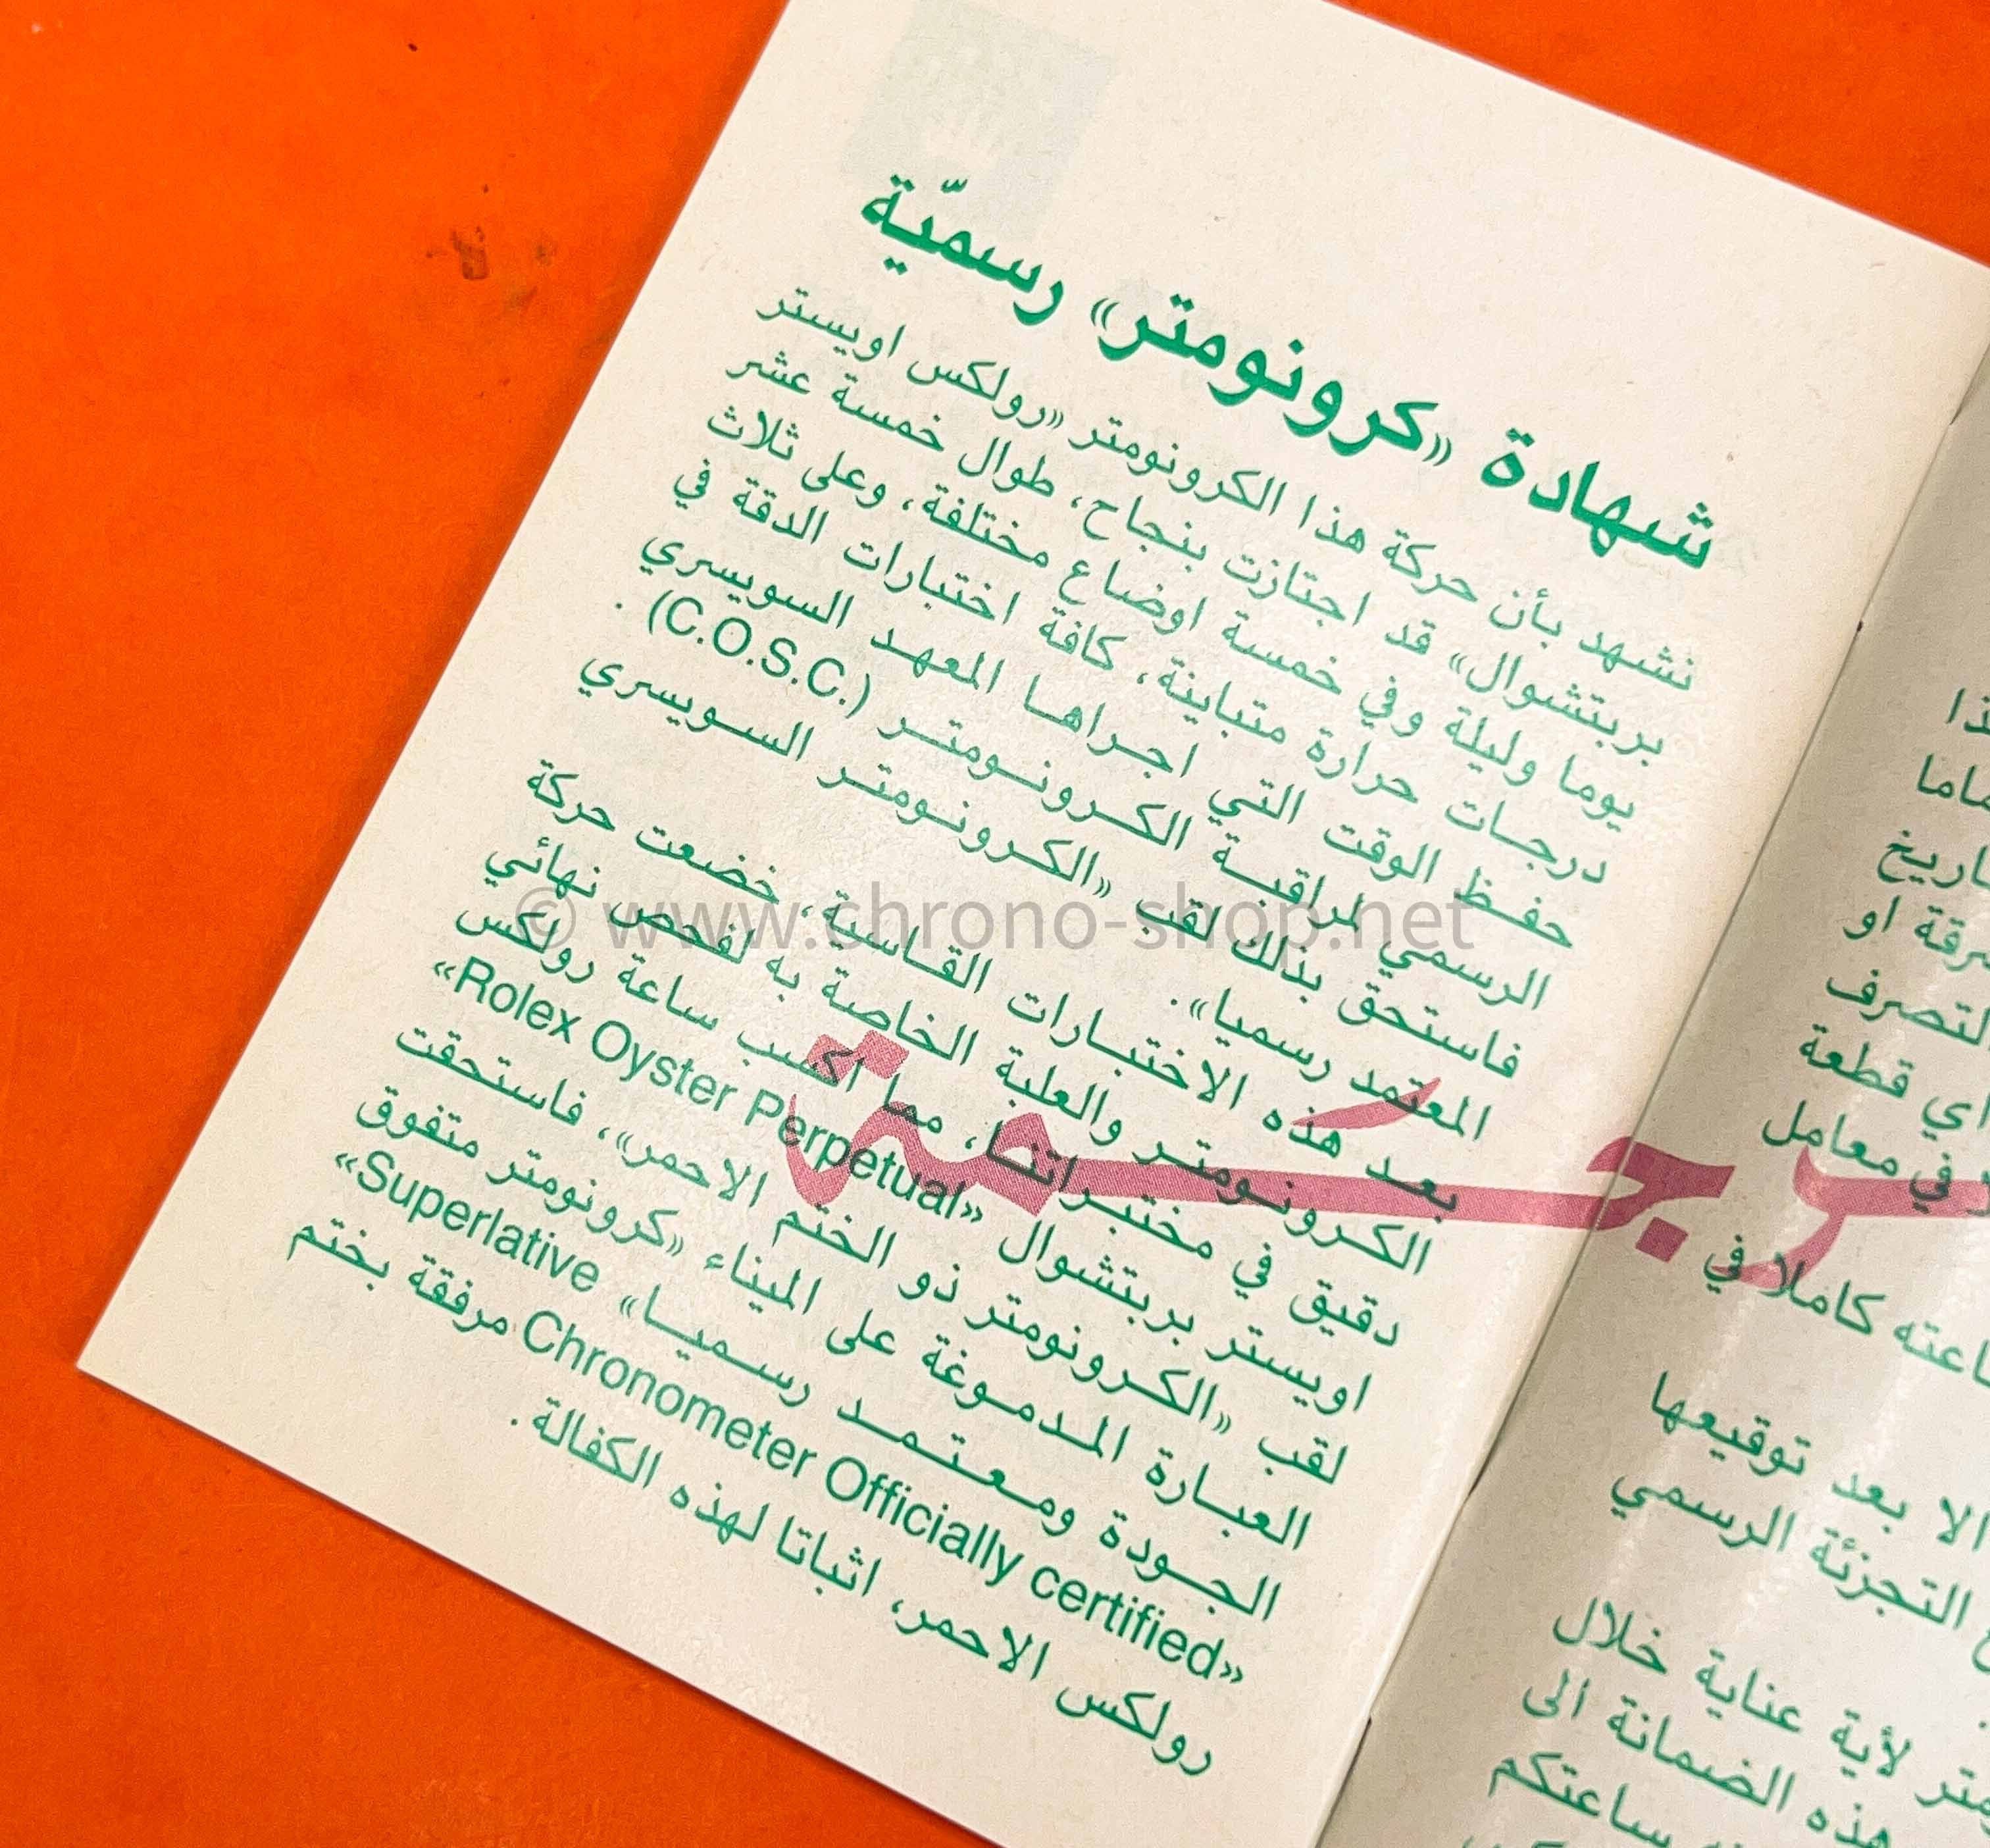 شهادة «كرونومتر» رسميّة
نشهد بأن حركة هذا الكرونومتر «رولكس اويستر
بربتشوال» قد اجتازت بنجاح، طوال خمسة عشر
يوما وليلة وفي خمسة اوضاع مختلفة، وعلى ثلاث
درجات حرارة متباينة، كافة اختبارات الدقة في
حفظ الوقت التي اجراها المعهد السويسري
الرسمي لمراقبة الكرونومتر (C.O.S.C.) .
فاستحق بذلك لقب «الكرونومتر السويسري
المعتمد رسميا».
بعد هذه الاختبارات القاسية، خضعت حركة
الكرونومتر والعلبة الخاصة به لفحص نهائي
دقيق في مختبراتنا، مما اكسب ساعة رولكس
اويستر بربتشوال «Rolex Oyster Perpetual»
لقب «الكرونومتر ذو الختم الاحمر»، فاستحقت
العبارة المدموغة على الميناء «كرونومتر متفوق
الجودة ومعتمد رسميا» «Superlative
Chronometer Officially certified» مرفقة بختم
رولكس الاحمر، اثباتا لهذه الكفالة .
© www.chrono-shop.net
اي قطعة
في معامل
كاملا في
الا بعد توقيعها
التجزئة الرسمي
لأية عناية خلال
هذه الضمانة الى
ساعتكم